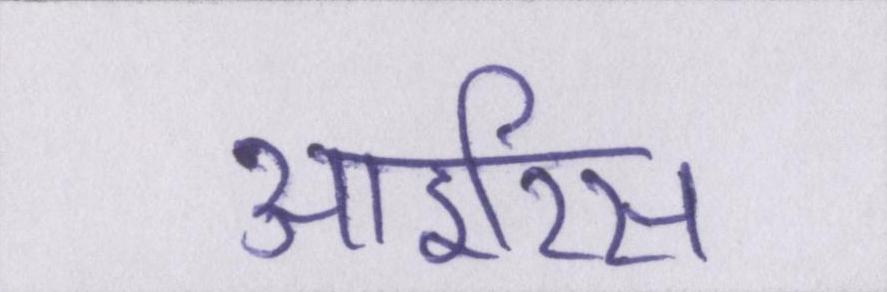 आइरिस